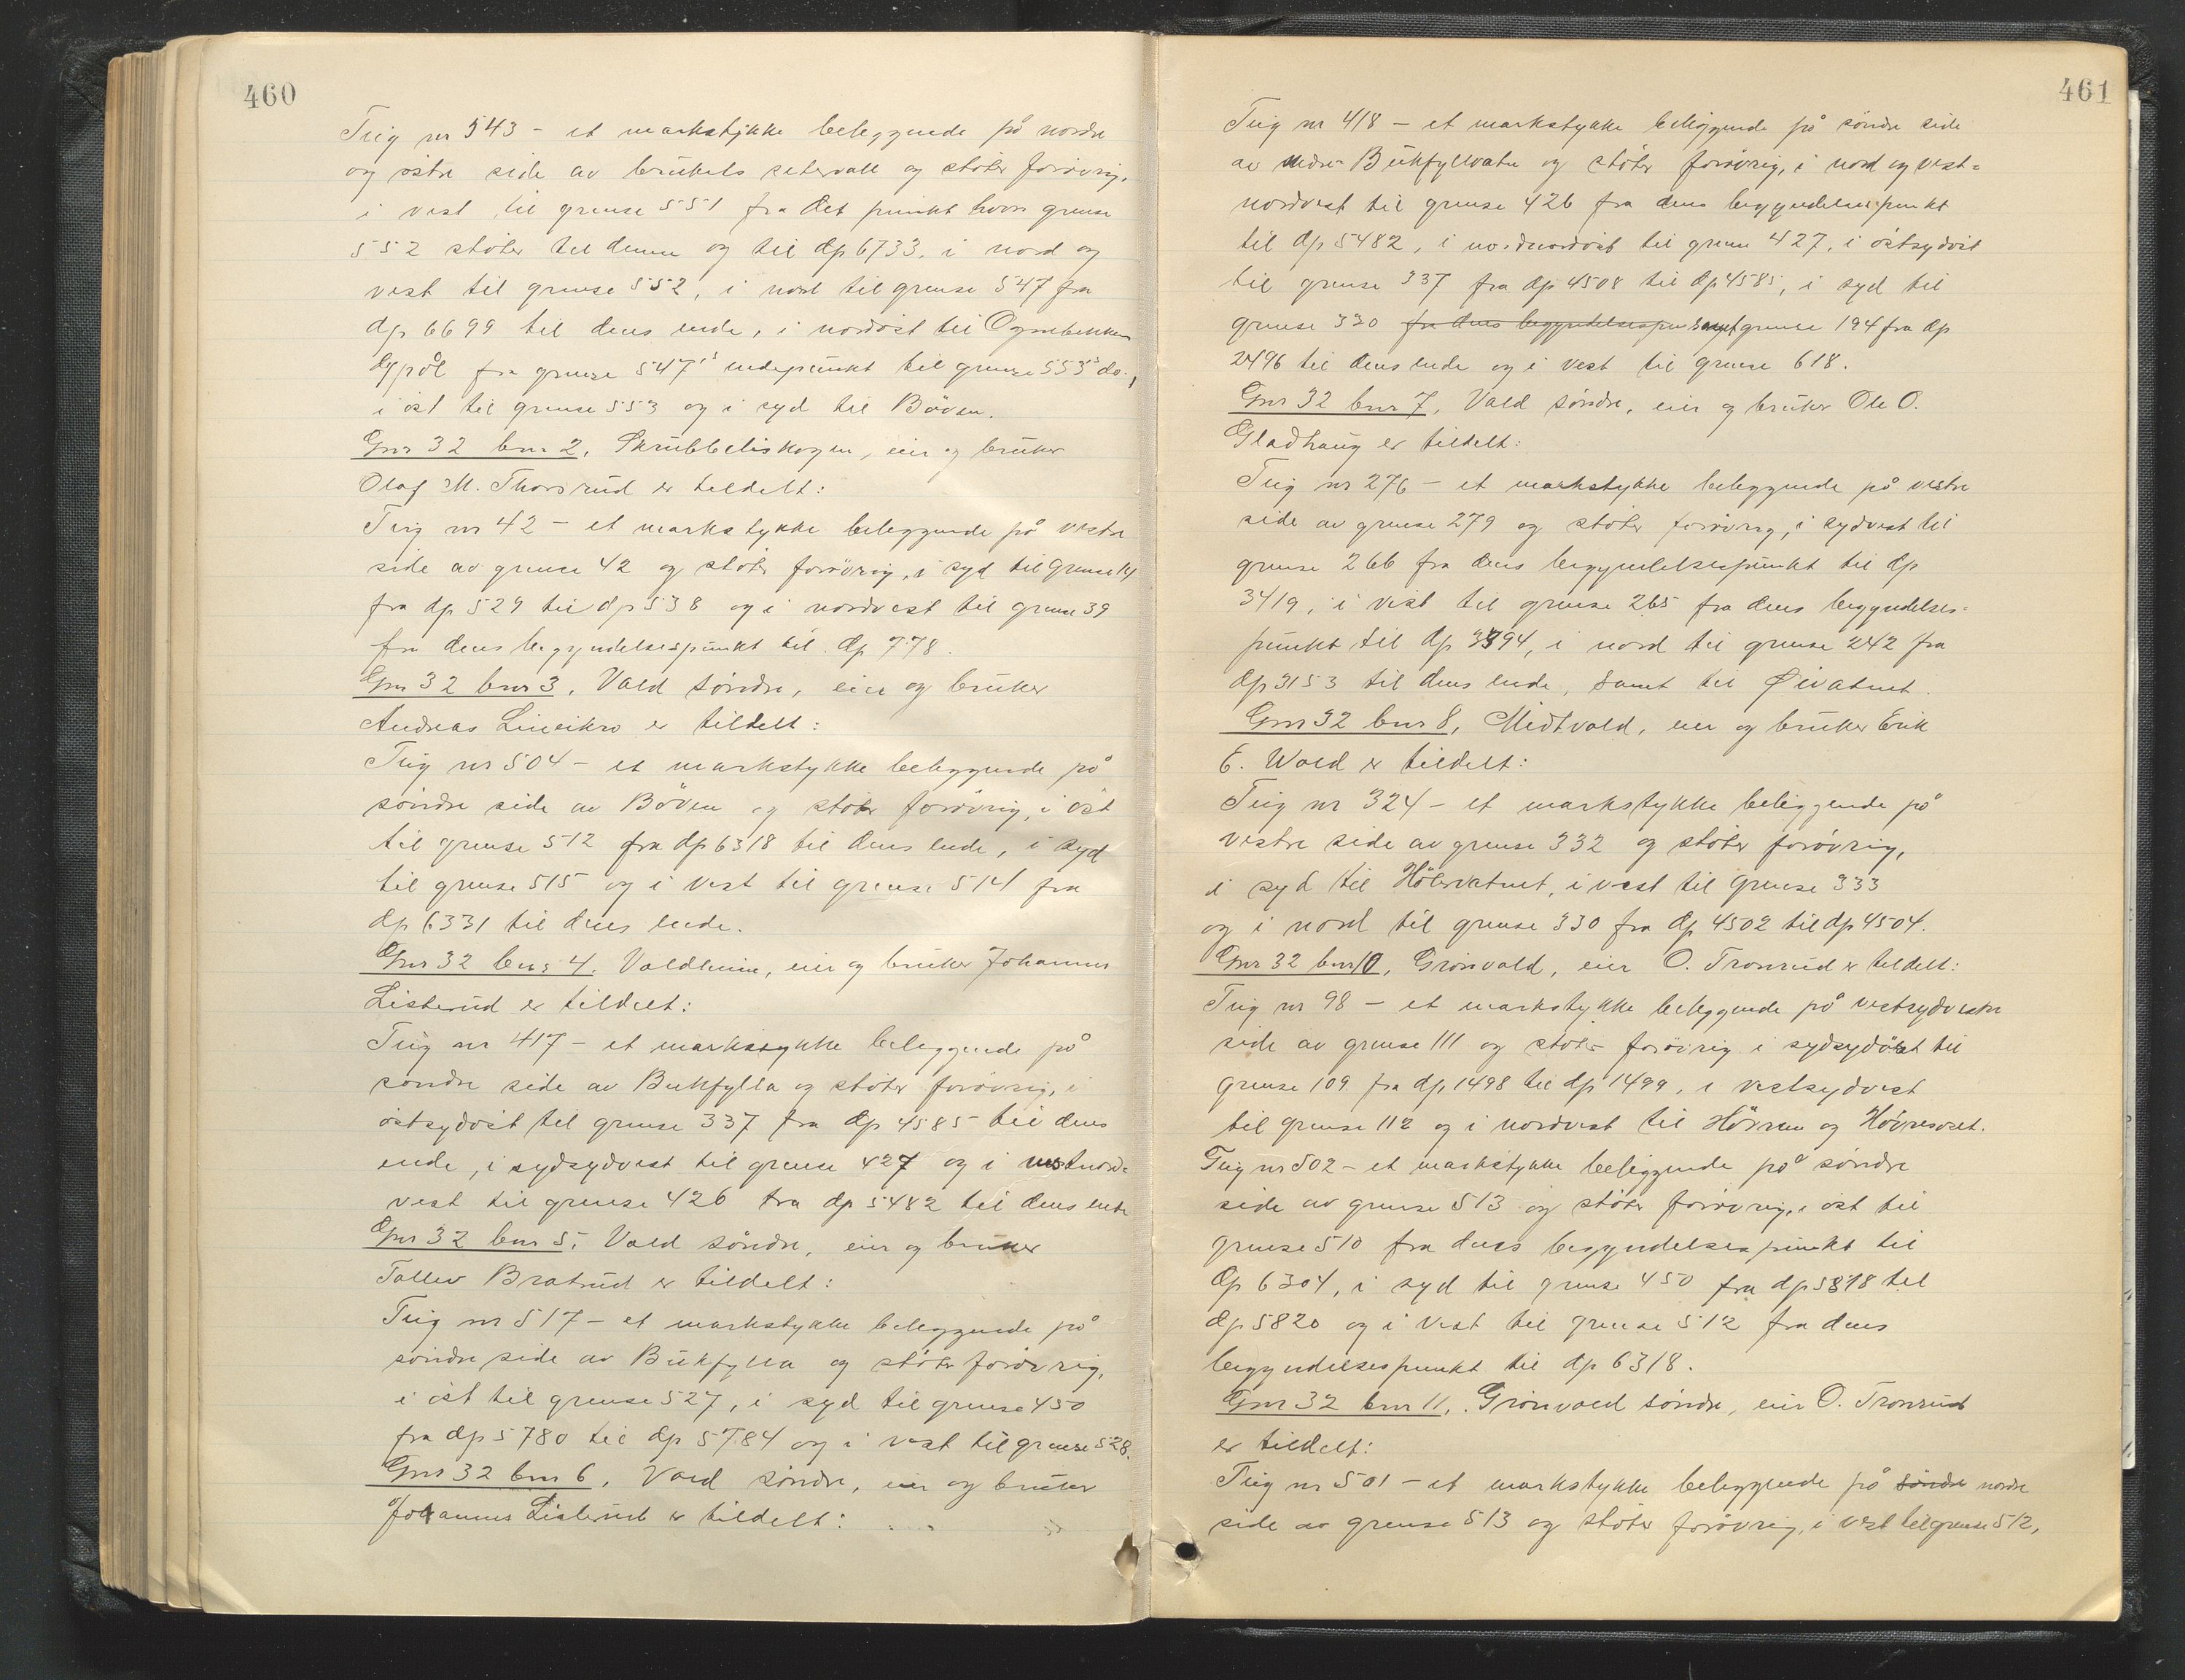 460
Teig nr 543 - et markstykke beliggende på nordre
og østre side av brukets setervall og støter forøvrig,
i vest til grense 551 fra det punkt hvor grense
552 støter til denne og til dp 6733, i nord og
vest til grense 552, i nord til grense 547 fra
dp 6699 til dens ende, i nordøst til
fra grense 547's endepunkt til grense 553's do.,
i øst til grense 553 og i syd til Bøven.
Gnr 32 bnr 2, Skrubbeliskogen, eier og bruker
Olaf M. Thorsrud er tildelt:
Teig nr 42 - et markstykke beliggende på vestre
side av grense 42 og støter forøvrig, i syd til grense 14
fra dp 529 til dp 538 og i nordvest til grense 39
fra dens begyndelsespunkt til dp 778.
Gnr 32 bnr 3, Vald søndre, eier og bruker
Andreas Lineikro er tildelt:
Teig nr 504 - et markstykke beliggende på
søndre side av Bøven og støter forøvrig, i øst
til grense 512 fra dp 6318 til dens ende, i syd
til grense 515 og i vest til grense 514 fra
dp 6331 til dens ende.
Gnr 32 bnr 4. Valdheim, eier og bruker Johannes
Listerud er tildelt:
Teig nr 417 - et markstykke beliggende på
søndre side av Bukfylla og støter forøvrig, i
østsydøst til grense 337 fra dp 4585 til dens
ende, i sydsydvest til grense 427 og i vestnord-
vest til grense 426 fra dp 5482 til dens ende
Gnr 32 bnr 5. Vald søndre, eier og bruker
Tollev Bratrud er tildelt:
Teig nr 517 - et markstykke beliggende på
søndre side av Bukfylla og støter forøvrig,
i øst til grense 527, i syd til grense 450
fra dp 5780 til dp 5784 og i vest til grense 528.
Gnr 32 bnr 6, Vald søndre, eier og bruker
Johannes Listerud er tildelt:
461
Teig nr 418 - et markstykke beliggende på søndre side
av nedre Bukfyllvatn og støter forøvrig, i nord og vest-
nordvest til grense 426 fra dens begyndelsespunkt
til dp 5482, i nordnordøst til grense 427, i østsydøst
til grense 337 fra dp 4508 til dp 4585, i syd til
grense 330 fra dens begyndelsespun samt grense 194 fra dp
2496 til dens ende og i vest til grense 618.
Gnr 32 bnr 7, Vald søndre, eier og bruker Ole O.
Gladhaug er tildelt:
Teig nr 276 - et markstykke beliggende på vestre
side av grense 279 og støter forøvrig, i sydvest til
grense 266 fra dens begyndelsespunkt til dp
3419, i vest til grense 265 fra dens begyndelses-
punkt til dp 3394, i nord til grense 242 fra
dp 3153 til dens ende, samt til Øivatnet.
Gnr 32 bnr 8, Midtvald, eier og bruker Erik
E. Wald er tildelt:
Teig nr 324 - et markstykke beliggende på
vestre side av grense 332 og støter forøvrig,
i syd til Hølervatnet, i vest til grense 333
og i nord til grense 330 fra dp 4502 til dp 4504.
Gnr 32 bnr 10, Grønvald, eier O. Tronrud er tildelt:
Teig nr 98 - et markstykke beliggende på vestsydvestre
side av grense 111 og støter forøvrig i sydsydøst til
grense 109 fra dp 1498 til dp 1499, i vestsydvest
til grense 112 og i nordvest til Høvren og Høvresoset.
Teig nr 502 - et markstykke beliggende på søndre
side av grense 513 og støter forøvrig, i øst til
grense 510 fra dens begyndelsespunkt til
dp 6304, i syd til grense 450 fra dp 5818 til
dp 5820 og i vest til grense 512 fra dens
begyndelsespunkt til dp 6318.
Gnr 32 bnr 11, Grønvald søndre, eier O. Tronrud
er tildelt:
Teig nr 501 - et markstykke beliggende på søndre nordre
side av grense 513 og støter forøvrig, i vest til grense 512,